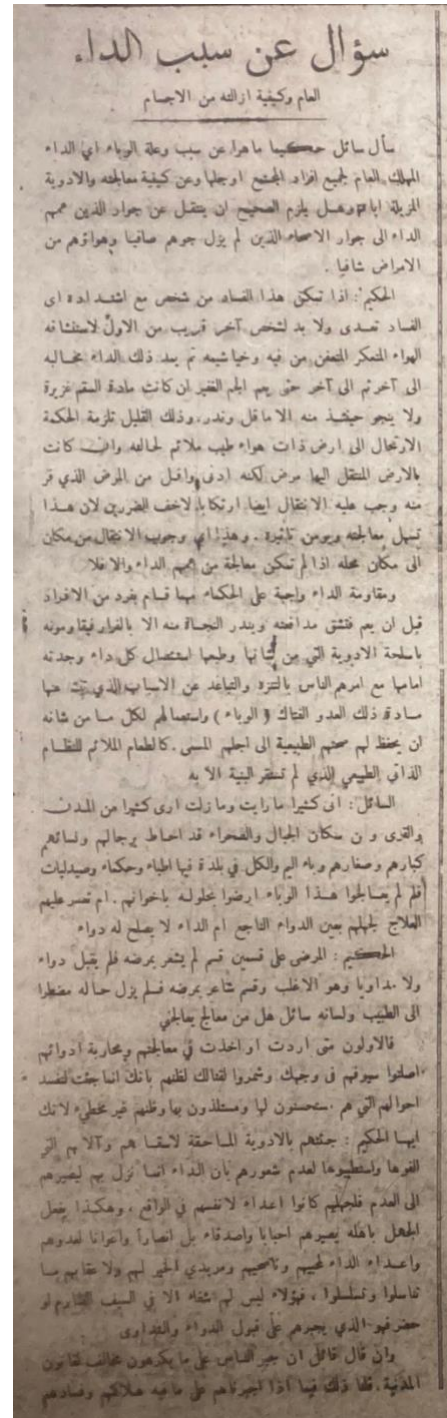 سؤال عن سبب الداء
العام وكيفية ازالته من الاجسام
سأل سائل حكيما ماهرا عن سبب وعلة الوباء اي الداء
المهلك العام لجميع افراد المجتمع اوجلها وعن كيفية معالجته والادوية
المزيلة اياه وهل يلزم الصحيح ان ينتقل عن جوار الذين عمهم
الداء الى جوار الاصحاء الذين لم يزل جوهم صافيا وهواؤهم من
الامراض شافيا .
الحكيم : اذا تمكن هذا الفساد من شخص مع اشتداده اى
الفساد تعدى ولا بد لشخص آخر قريب من الاول لاستنشاقه
الهواء المتعكر المتعفن من فيه وخياشيمه ثم يمد ذلك الداء مخالبه
الى آخر ثم الى آخر حتى يعم الجم الغفير ان كانت مادة السقم غزيرة
ولا ينجو حينئذ منه الا ما قل وندر . وذلك القليل تلزمه الحكمة
الارتحال الى ارض ذات هواء طيب ملائم لحالته وان كانت
بالارض المنتقل اليها مرض لكنه ادنى واقل من المرض الذي فر
منه وجب عليه الانتقال ايضا ارتكابا لاخف الضررين لان هذا
تسهل معالجته ويومن تاثيره . وهذا اي وجوب الانتقال من مكان
الى مكان محله اذا لم تمكن معالجة من عمهم الداء والا فلا
ومقاومة الداء واجبة على الحكماء مهما قام بفرد من الافراد
قبل ان يعم فتشق مدافعته ويندر النجاة منه الا بالفرار فيقاومونه
باسلحة الادوية التي من شانها وطبعها استئصال كل داء وجدته
امامها مع امرهم الناس بالتنزه والتباعد عن الاسباب الذي عنها
مادة ذلك العدو الفتاك ( الوباء ) واستعمالهم لكل ما من شانه
ان يحفظ لهم صحتهم الطبيعية الى اجلهم المسمى . كالطعام الملائم للنظام
الذاتي الطبيعي الذي لم تستقر البنية الا به
السائل : انى كثيرا ما رايت وما زلت ارى كثيرا من المدن
والقرى و ن سكان الجبال والصحراء قد احاط برجالهم ونسائهم
كبارهم وصغارهم وباء اليم والكل في بلدة فيها اطباء وحكماء وصيدليات
فلم لم يعالجوا هذا الوباء ارضوا بحلوله باخوانهم . ام تعسر عليهم
العلاج لجهلهم بعين الدواء الناجع ام الداء لا يصلح له دواء
الحكيم : المرضى على قسمين قسم لم يشعر بمرضه فلم يقبل دواء
ولا مداويا وهو الاغلب وقسم شاعر بمرضه فلم يزل حاله مضطرا
الى الطبيب ولسانه سائل هل من معالج يعالجني
فالاولون متى اردت او اخذت في معالجتهم ومحاربة ادوائهم
اصلتوا سيوفهم فى وجهك وشمروا لقتالك لظنهم بانك انما جئت لتفسد
احوالهم التي هم مستحسنون لها ومستلذون بها وظنهم غير مخطيء لانك
ايها الحكيم : جئتهم بالادوية الماحقة لاسقامهم وآلامهم التي
الفوها واستطيبوها لعدم شعورهم بان الداء انما نزل بهم ليصيرهم
الى العدم فلجهلهم كانوا اعداء لانفسهم في الواقع . وهكذا يفعل
الجهل باهله يصيرهم احبابا واصدقاء بل انصارا واعوانا لعدوهم
واعداء الداء لمحبيهم وناصحيهم ومريدي الخير لهم ولاعقابهم ما
تناسلوا وتسلسلوا . فهؤلاء ليس لهم شفاء الا في السيف الصارم لو
حضر فهو الذي يجبرهم على قبول الدواء والتداوى
وان قال قائل ان جبر الناس على ما يكرهون مخالف لقانون
المدنية . قلنا ذلك فيما اذا اجبرناهم على ما فيه هلاكهم وفسادهم